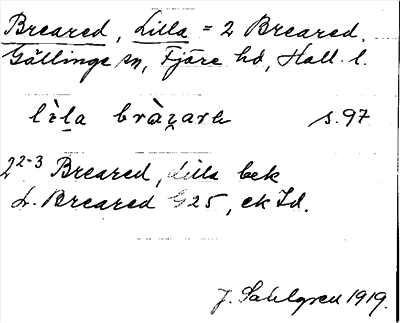 Breared, Lilla = 2 Breared.
Gällinge sn, Fjäre hd, Hall. l.
s. 97
2²⁻³ Breared, Lilla bek
L. Breared G25, ek Jd.
J. Sahlgren 1919.